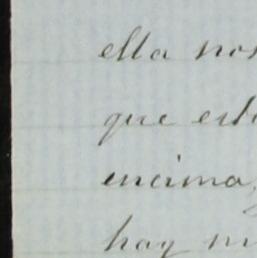 ella nos
que est
encima,
hay m